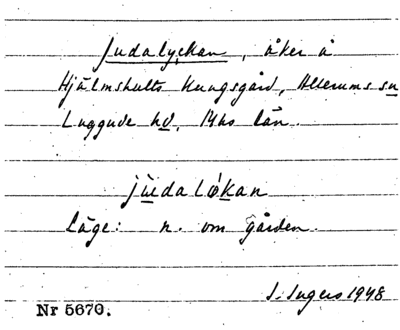 Judalyckan, åker å
Hjälmshults Kungsgård, Allerums sn
Luggude hd, Mhs län.
jùdaløkan
Läge: n. om gården.
S. Ingers 1948
Nr 5670.